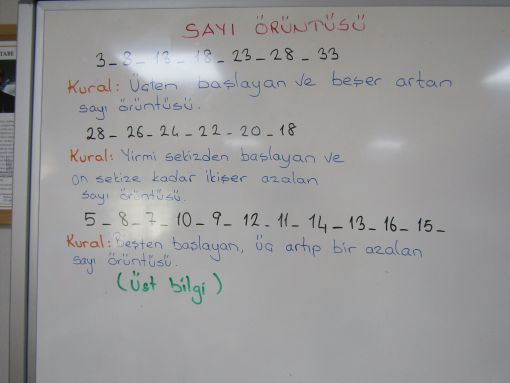 SAYI ÖRÜNTÜSÜ
3_8_13_18_23_28_33
Kural: Üçten başlayan ve beşer artan
sayı örüntüsü.
28_26_24_22_20_18
Kural: Yirmi sekizden başlayan ve
on sekize kadar ikişer azalan
sayı örüntüsü.
5_8_7_10_9_12_11_14_13_16_15_
Kural: Beşten başlayan, üç artıp bir azalan
sayı örüntüsü.
(Üst bilgi)